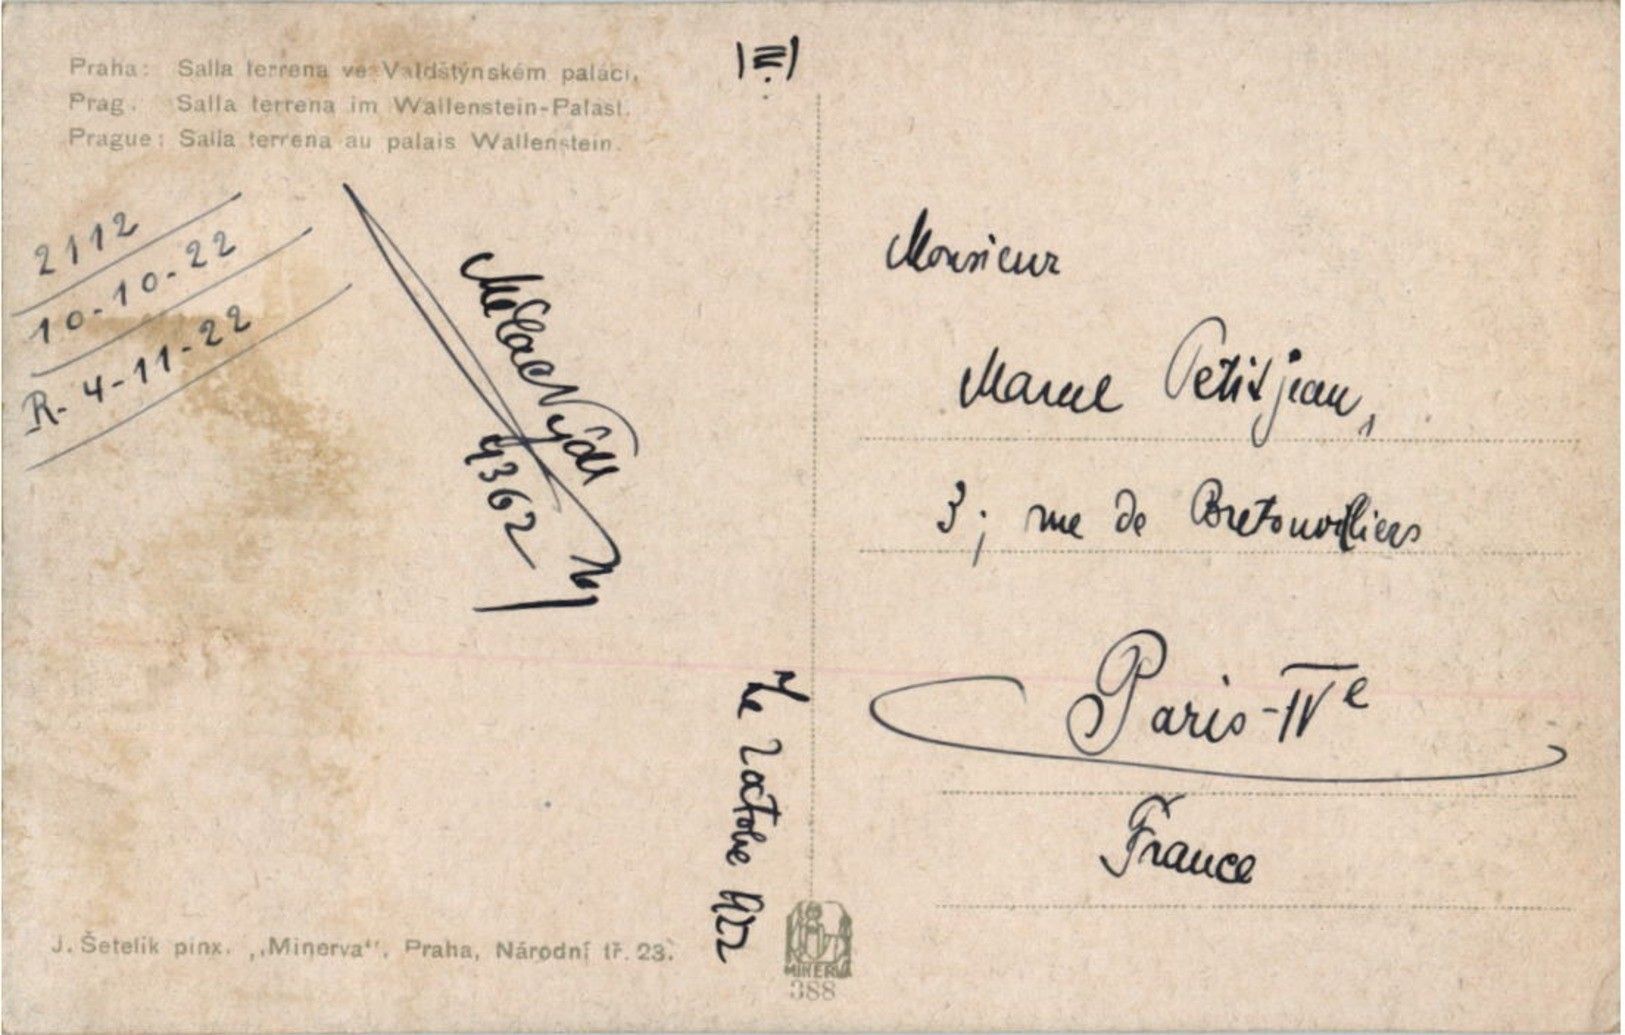 Praha: Salla terrena ve Valdštýnském paláci.
Prag. Salla terrena im Wallenstein-Palast.
Prague: Salla terrena au palais Wallenstein.
III
2112
10-10-22
R- 4-11-22
4362
Le 2 octobre 1922
Monsieur
Marcel Petitjean,
3; rue de Bretonvilliers
Paris-IVe
France
J. Šetelík pinx. „Minerva“, Praha, Národní tř. 23.
MINERVA
388